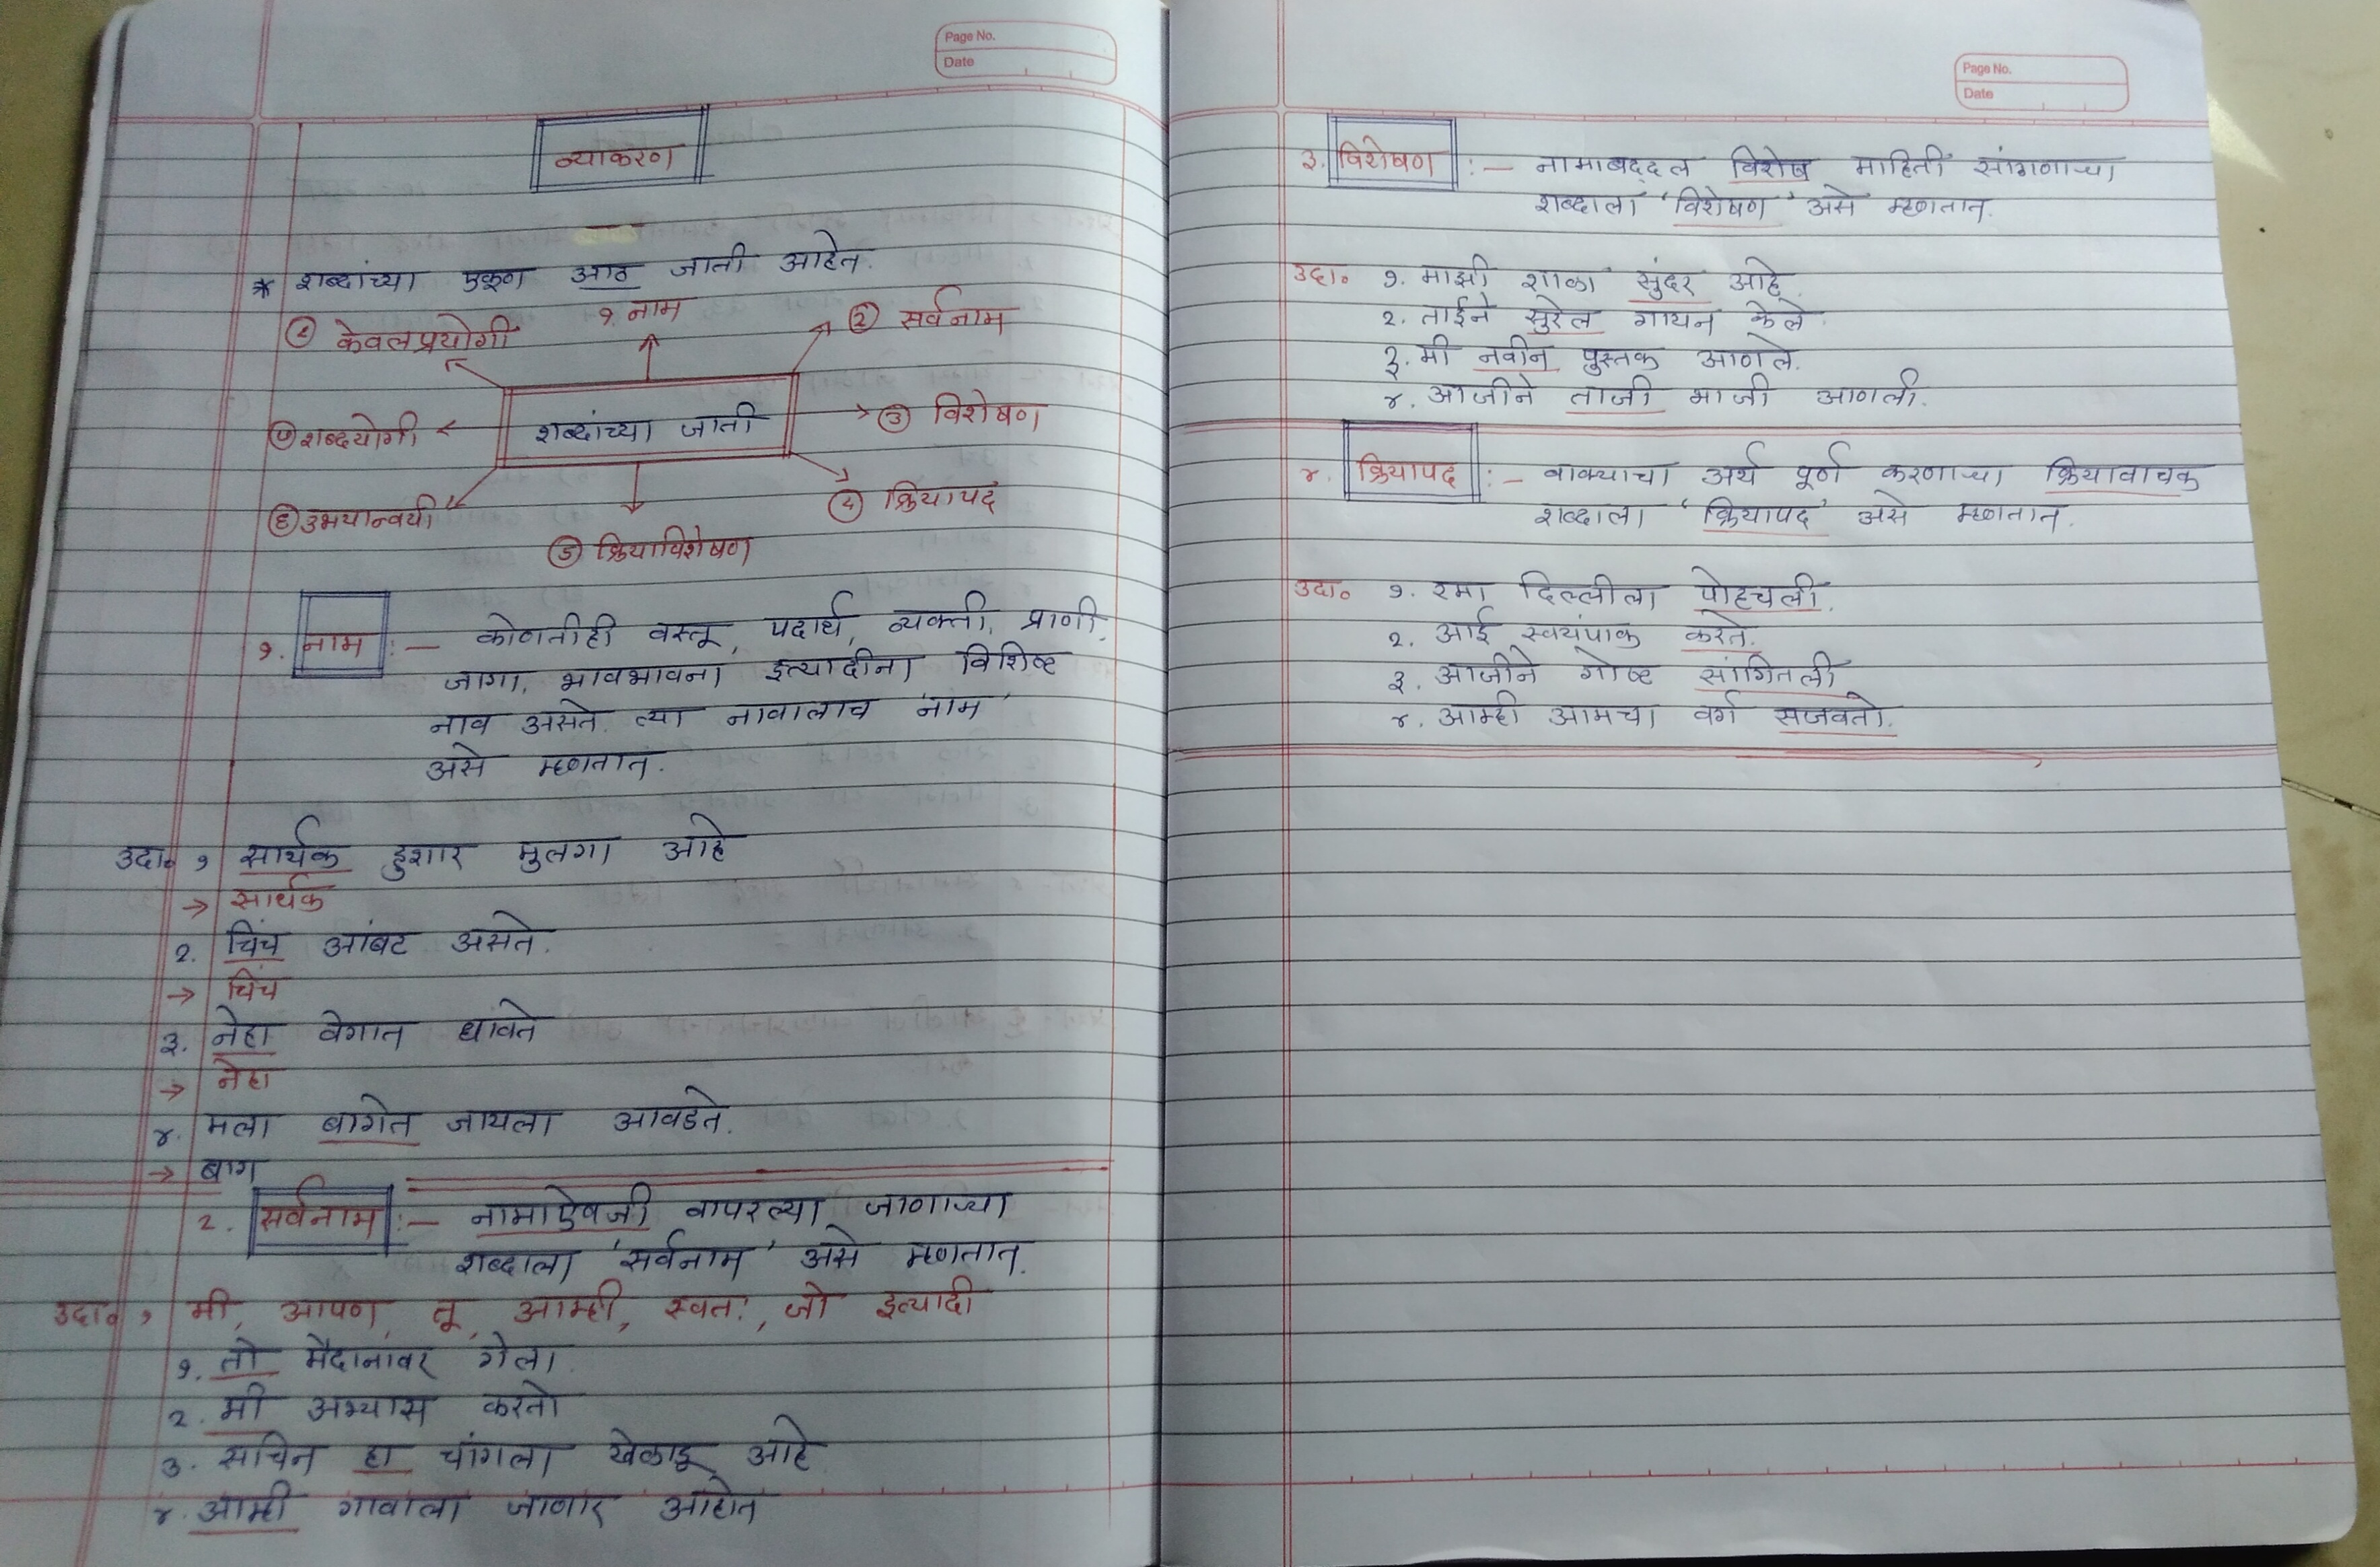 Page No.
Date
व्याकरण
* शब्दांच्या एकूण आठ जाती आहेत.
१. नाम
② सर्वनाम
केवलप्रयोगी
शब्दांच्या जाती
③ विशेषण
शब्दयोगी
क्रियापद
⑥ उभयान्वयी
⑤ क्रियाविशेषण
१. नाम :— कोणतीही वस्तू, पदार्थ, व्यक्ती, प्राणी,
जागा, भावभावना इत्यादीना विशिष्ट
नाव असते. त्या नावालाच 'नाम'
असे म्हणतात.
उदा० १ सार्थक हुशार मुलगा आहे
→ सार्थक
२. चिंच आंबट असते.
→ चिंच
३. नेहा वेगात धावते
→ नेहा
४. मला बागेत जायला आवडते.
→ बाग
२. सर्वनाम :— नामाऐवजी वापरल्या जाणाऱ्या
शब्दाला 'सर्वनाम' असे म्हणतात.
उदा० , मी, आपण, तू, आम्ही, स्वतः, जो इत्यादी
१. तो मैदानावर गेला.
२. मी अभ्यास करतो
३. सचिन हा चांगला खेळाडू आहे
४. आम्ही गावाला जाणार आहोत
Page No.
Date
३. विशेषण :— नामाबद्दल विशेष माहिती सांगणाऱ्या
शब्दाला 'विशेषण' असे म्हणतात.
उदा० १. माझी शाळा सुंदर आहे.
२. ताईने सुरेल गायन केले.
३. मी नवीन पुस्तक आणले.
४. आजीने ताजी भाजी आणली.
४. क्रियापद :— वाक्याचा अर्थ पूर्ण करणाऱ्या क्रियावाचक
शब्दाला 'क्रियापद' असे म्हणतात.
उदा० १. रमा दिल्लीला पोहचली.
२. आई स्वयंपाक करते.
३. आजीने गोष्ट सांगितली
४. आम्ही आमचा वर्ग सजवतो.